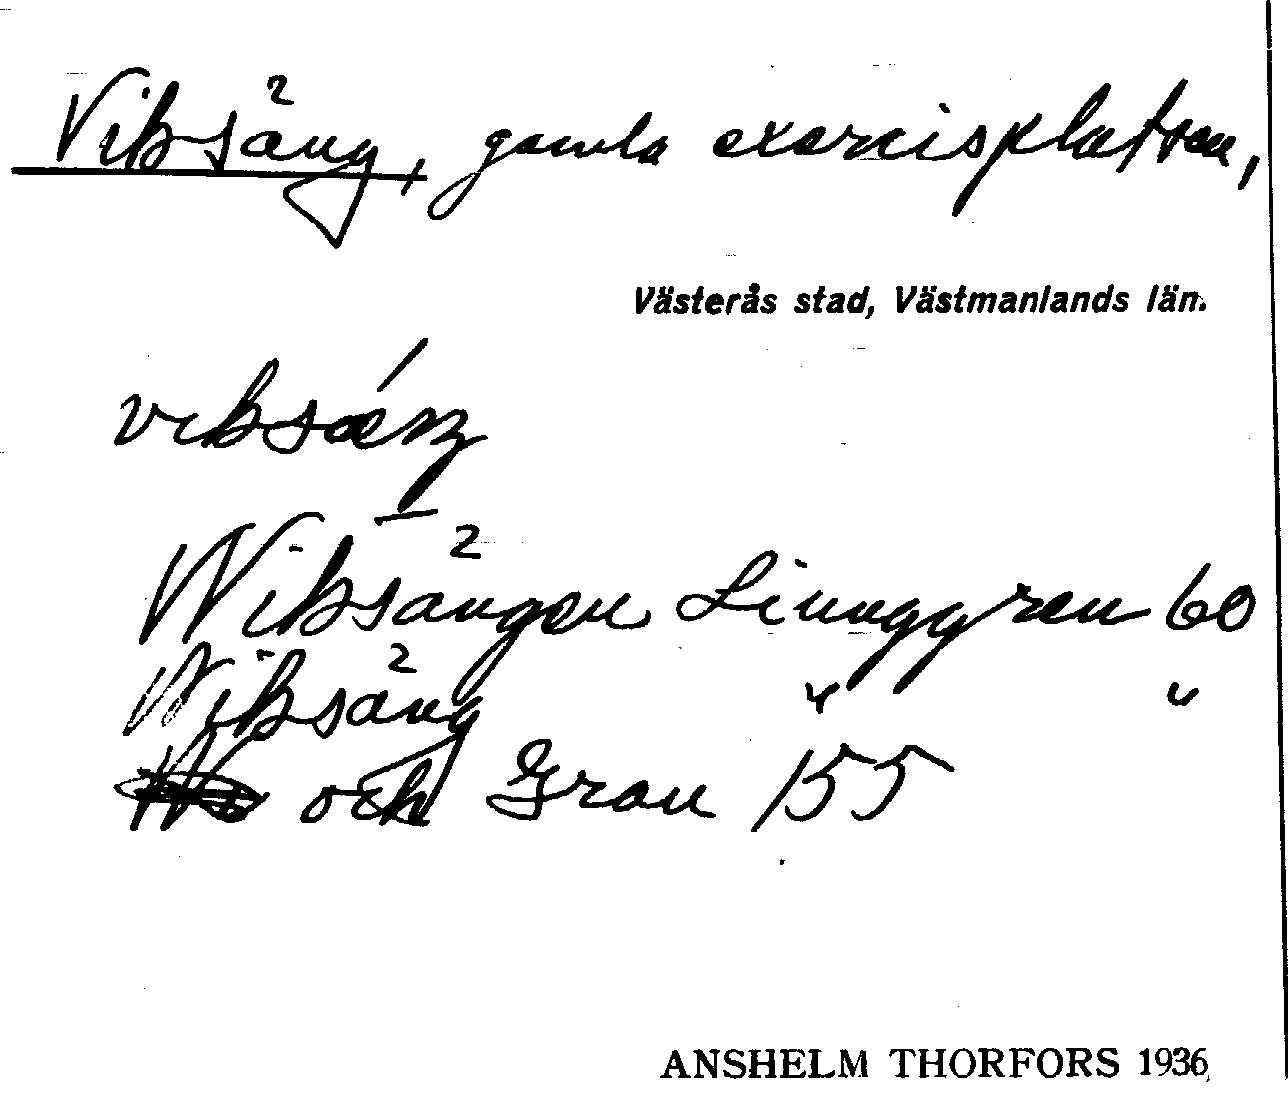 Viksäng, gamla exercisplatsen,
Västerås stad, Västmanlands län.
viksäŋ
Wiksängen Linnggren 60
Wiksäng " "
och Grau 155
ANSHELM THORFORS 1936